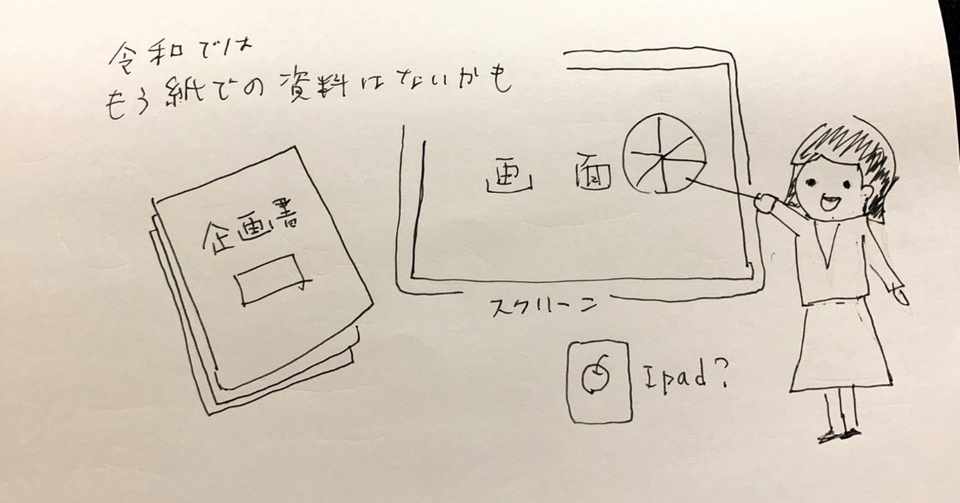 令和では
もう紙での資料はないかも
企画書
画面
スクリーン
Ipad?